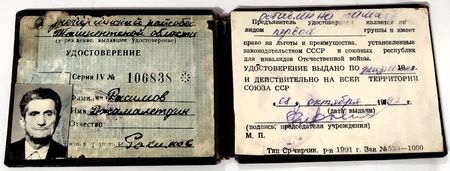 Ташкентской области
(учреждение, выдавшее удостоверение)
УДОСТОВЕРЕНИЕ
Серия IV № 106838 *
Фамилия Расимов
Имя
Отчество
Предъявитель удостоверения является ин-
валидом первой группы и имеет
право на льготы и преимущества, установленные
законодательством СССР и союзных республик
для инвалидов Отечественной войны.
УДОСТОВЕРЕНИЕ ВЫДАНО ПО
И ДЕЙСТВИТЕЛЬНО НА ВСЕЙ ТЕРРИТОРИИ
СОЮЗА ССР
08 октября
(дата выдачи)
(подпись председателя учреждения)
М. П.
Тип Ср-чирчик. р-н 1991 г. Зак № 530—1000